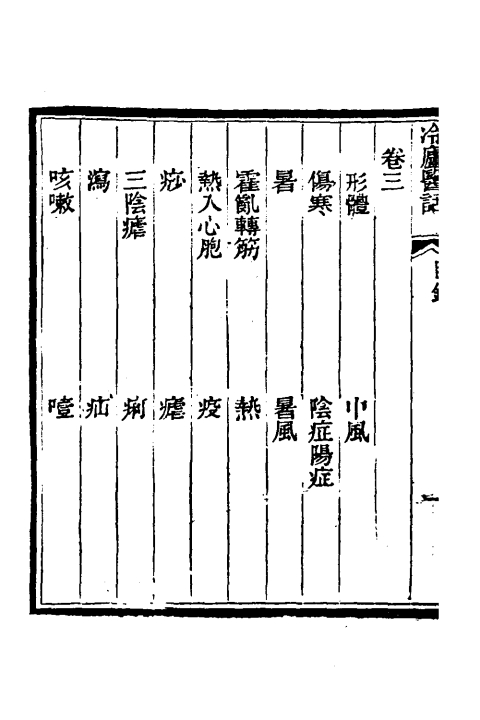 冷廬醫話
目錄
卷三
形體 中風
傷寒 陰症陽症
暑 暑風
霍亂轉筋 熱
熱入心胞 疫
痧 瘧
三陰瘧 痢
瀉 疝
咳嗽 噎